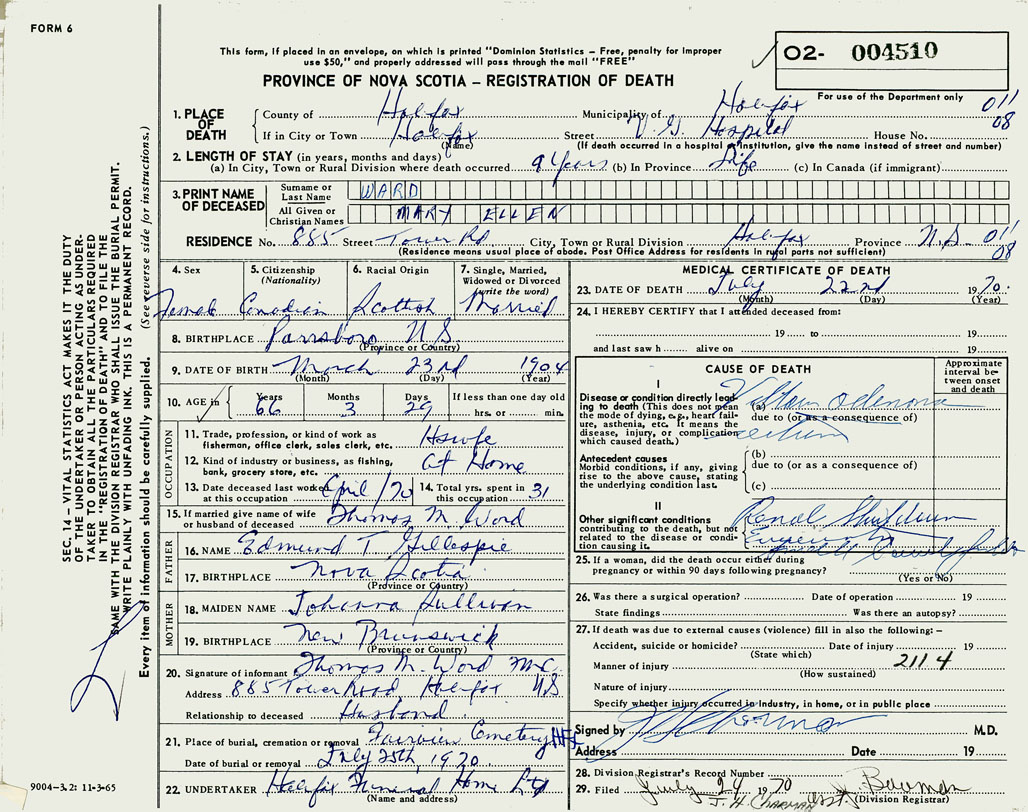 FORM 6
This form, if placed in an envelope, on which is printed "Dominion Statistics – Free, penalty for improper
use $50," and properly addressed will pass through the mail "FREE"
O2- 004510
PROVINCE OF NOVA SCOTIA – REGISTRATION OF DEATH
For use of the Department only
011
08
1. PLACE OF DEATH
County of Halifax Municipality of Halifax
If in City or Town Halifax Street V.G. Hospital House No.
(Name) (If death occurred in a hospital or institution, give the name instead of street and number)
2. LENGTH OF STAY (in years, months and days)
(a) In City, Town or Rural Division where death occurred 9 Years (b) In Province Life (c) In Canada (if immigrant)
3. PRINT NAME OF DECEASED
Surname or Last Name WARD
All Given or Christian Names MARY ELLEN
RESIDENCE No. 885 Street Tower Rd City, Town or Rural Division Halifax Province N.S. 011
(Residence means usual place of abode. Post Office Address for residents in rural parts not sufficient) 08
4. Sex Female
5. Citizenship (Nationality) Canadian
6. Racial Origin Scottish
7. Single, Married, Widowed or Divorced (write the word) Married
8. BIRTHPLACE Parrsboro N.S.
(Province or Country)
9. DATE OF BIRTH March 23rd 1904
(Month) (Day) (Year)
10. AGE in Years 66 Months 3 Days 29 If less than one day old hrs. or min.
OCCUPATION
11. Trade, profession, or kind of work as fisherman, office clerk, sales clerk, etc. Hswfe
12. Kind of industry or business, as fishing, bank, grocery store, etc. At Home
13. Date deceased last worked at this occupation April /70 14. Total yrs. spent in this occupation 31
15. If married give name of wife or husband of deceased Thomas M. Ward
FATHER
16. NAME Edmund T. Gillespie
17. BIRTHPLACE Nova Scotia
(Province or Country)
MOTHER
18. MAIDEN NAME Johanna Sullivan
19. BIRTHPLACE New Brunswick
(Province or Country)
20. Signature of informant Thomas M. Ward
Address 885 Tower Road, Halifax NS
Relationship to deceased Husband
21. Place of burial, cremation or removal Fairview Cemetery Hfx
Date of burial or removal July 25th, 1970
22. UNDERTAKER Halifax Funeral Home Ltd
(Name and address)
MEDICAL CERTIFICATE OF DEATH
23. DATE OF DEATH July 22nd 1970.
(Month) (Day) (Year)
24. I HEREBY CERTIFY that I attended deceased from:
19 to 19
and last saw h alive on 19
CAUSE OF DEATH
Approximate interval between onset and death
I
Disease or condition directly leading to death (This does not mean the mode of dying, e.g., heart failure, asthenia, etc. It means the disease, injury, or complication which caused death.)
(a) Villous adenoma
due to (or as a consequence of)
rectum
Antecedent causes
Morbid conditions, if any, giving rise to the above cause, stating the underlying condition last.
(b)
due to (or as a consequence of)
(c)
II
Other significant conditions contributing to the death, but not related to the disease or condition causing it.
Renal Shutdown
25. If a woman, did the death occur either during pregnancy or within 90 days following pregnancy?
(Yes or No)
26. Was there a surgical operation? Date of operation 19
State findings Was there an autopsy?
27. If death was due to external causes (violence) fill in also the following: –
Accident, suicide or homicide? Date of injury 19
(State which)
Manner of injury 2114
(How sustained)
Nature of injury
Specify whether injury occurred in Industry, in home, or in public place
Signed by M.D.
Address Date 19
28. Division Registrar's Record Number
29. Filed July 24 1970 Bauman
J. H. CHARMAN (Division Registrar)
SEC. 14 – VITAL STATISTICS ACT MAKES IT THE DUTY
OF THE UNDERTAKER OR PERSON ACTING AS UNDER-
TAKER TO OBTAIN ALL THE PARTICULARS REQUIRED
IN THE "REGISTRATION OF DEATH" AND TO FILE THE
SAME WITH THE DIVISION REGISTRAR WHO SHALL ISSUE THE BURIAL PERMIT.
WRITE PLAINLY WITH UNFADING INK. THIS IS A PERMANENT RECORD.
Every item of information should be carefully supplied. (See reverse side for instructions.)
9004-3.2: 11-3-65